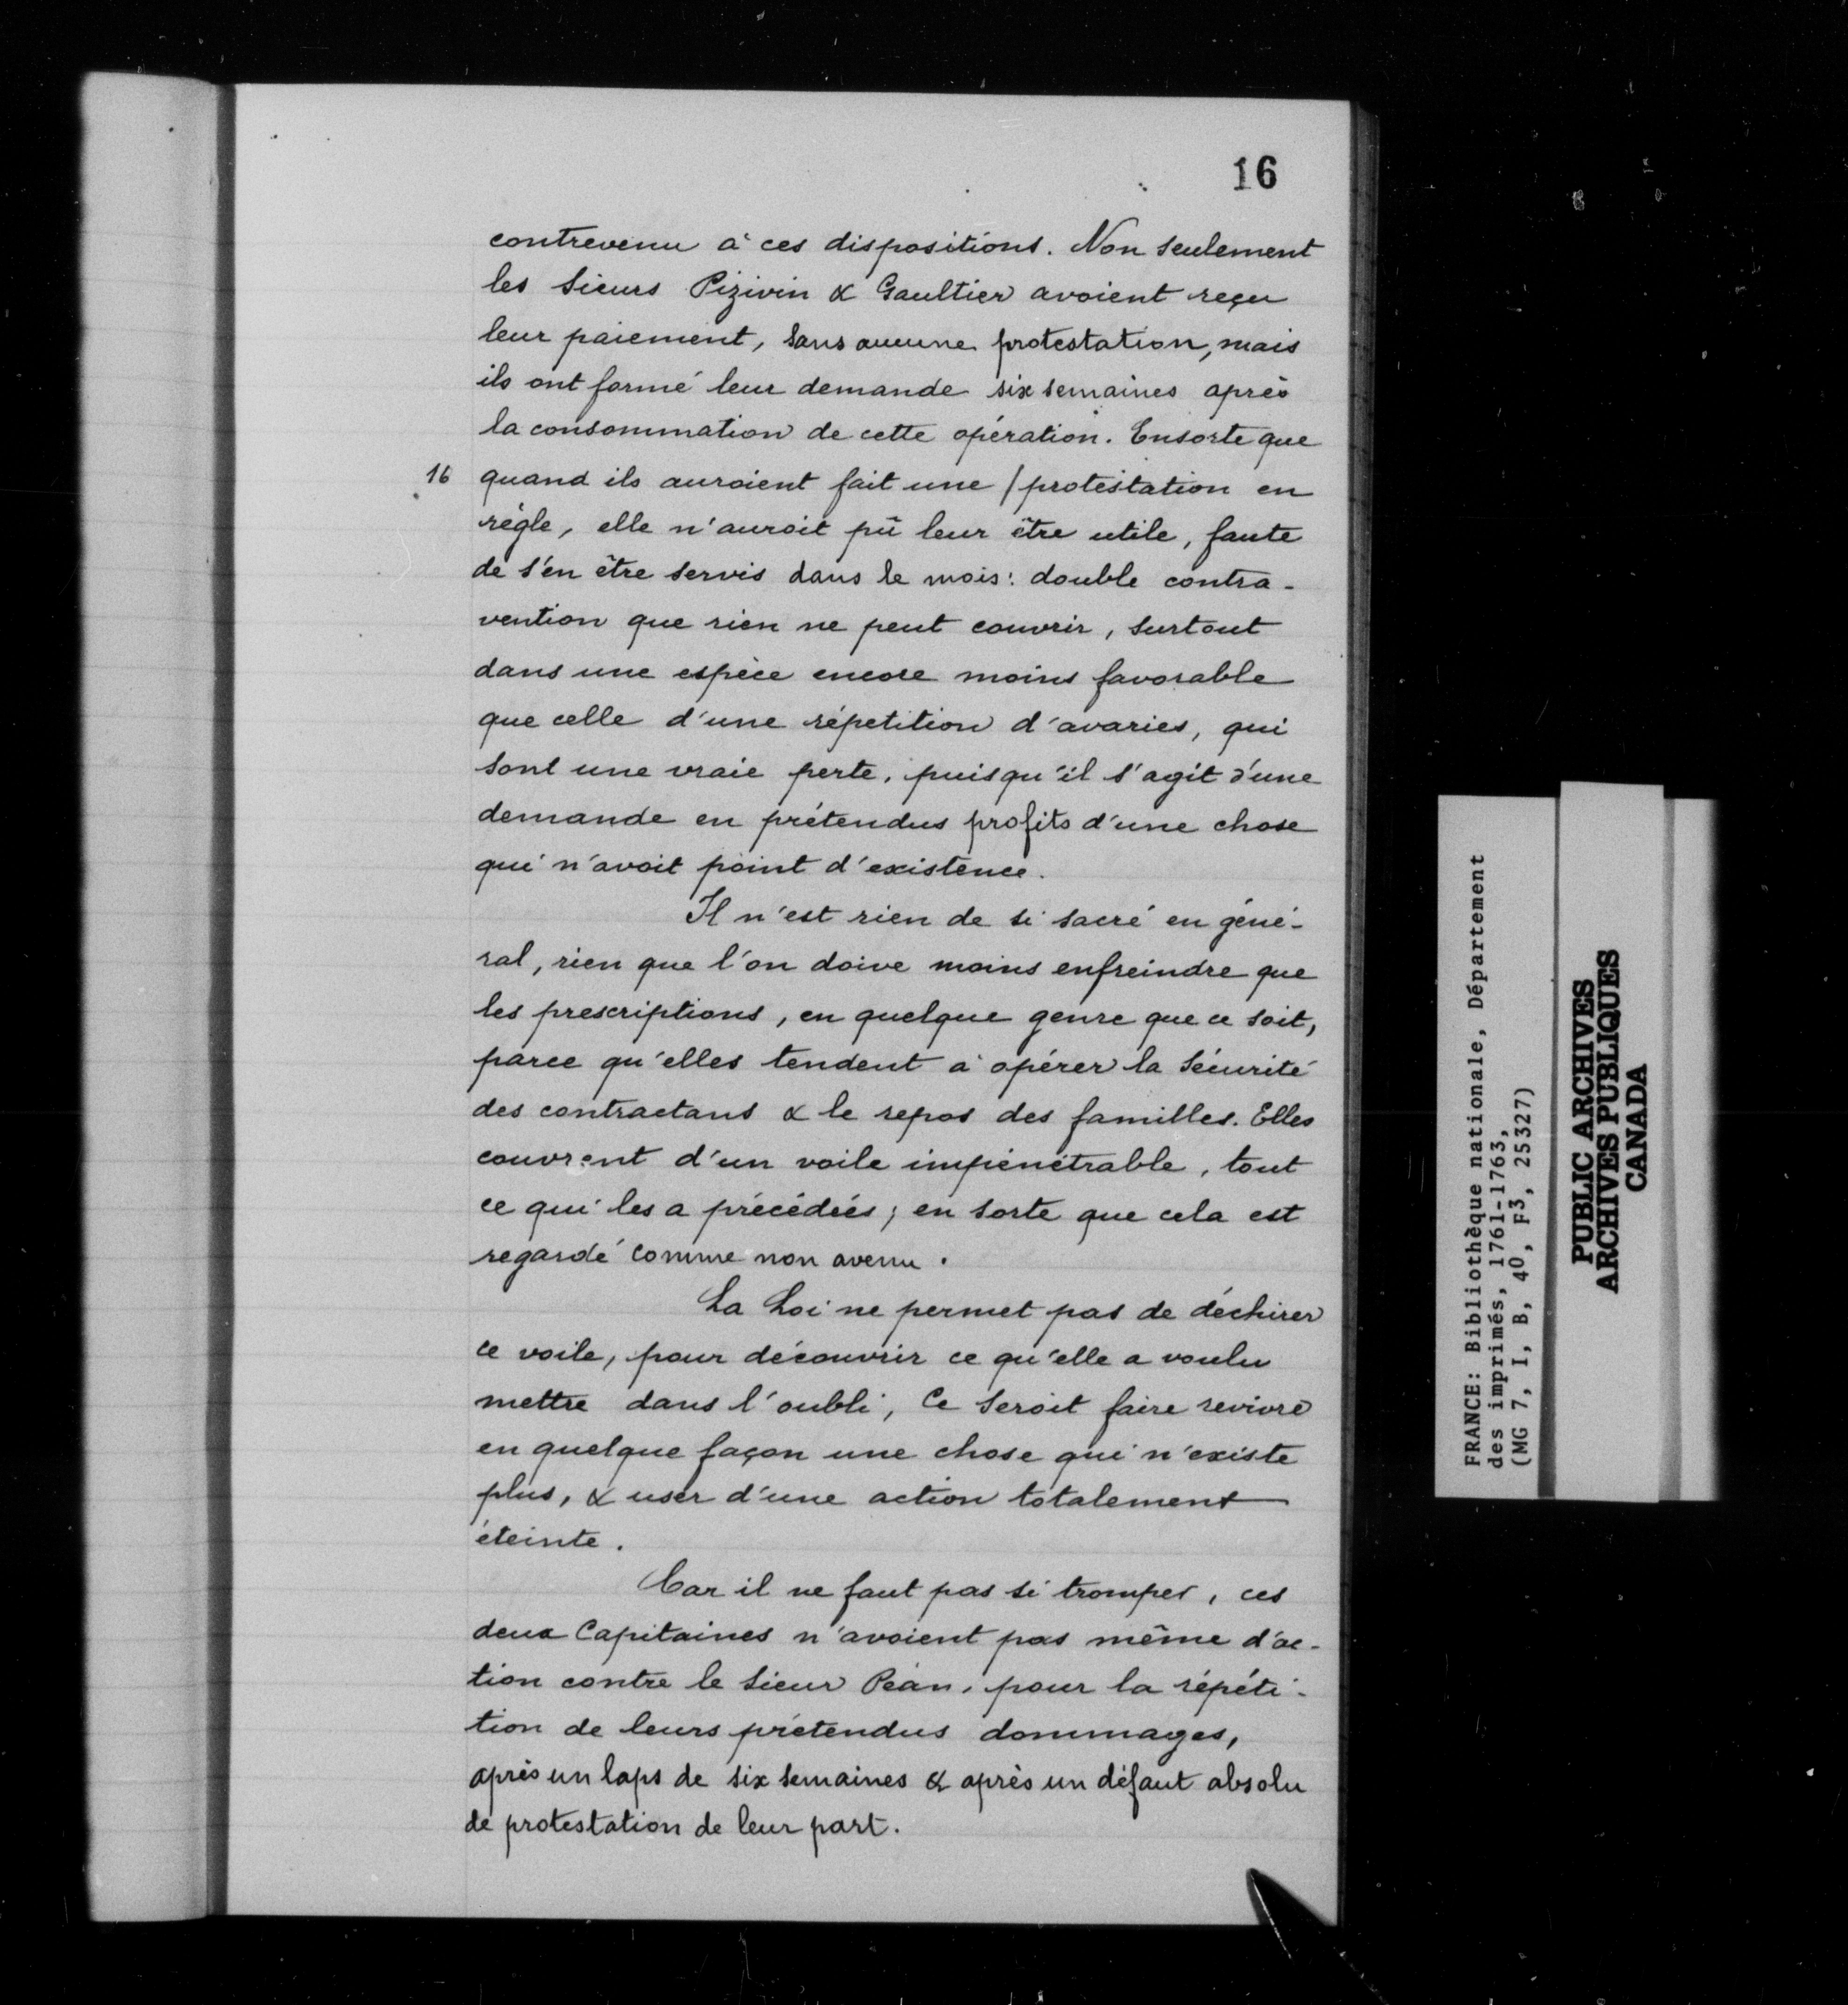 16
contrevenu à ces dispositions. Non seulement
les Sieurs Pizivin & Gaultier avoient reçu
leur paiement, sans aucune protestation, mais
ils ont formé leur demande six semaines après
la consommation de cette opération. Ensorte que
16 quand ils auroient fait une / protestation en
règle, elle n'auroit pû leur être utile, faute
de s'en être servis dans le mois: double contra-
vention que rien ne peut couvrir, surtout
dans une espèce encore moins favorable
que celle d'une répetition d'avaries, qui
sont une vraie perte, puisqu'il s'agit d'une
demande en prétendus profits d'une chose
qui n'avoit point d'existence.
Il n'est rien de si sacré en géné-
ral, rien que l'on doive moins enfreindre que
les prescriptions, en quelque genre que ce soit,
parce qu'elles tendent à opérer la sécurité
des contractans & le repos des familles. Elles
couvrent d'un voile impénétrable, tout
ce qui les a précédées; en sorte que cela est
regardé comme non avenu.
La Loi ne permet pas de déchirer
ce voile, pour découvrir ce qu'elle a voulu
mettre dans l'oubli, Ce seroit faire revivre
en quelque façon une chose qui n'existe
plus, & user d'une action totalement
éteinte.
Car il ne faut pas si tromper, ces
deux Capitaines n'avoient pas même d'ac-
tion contre le Sieur Péan, pour la répéti-
tion de leurs prétendus dommages,
après un laps de six semaines & après un défaut absolu
de protestation de leur part.
FRANCE: Bibliothèque nationale, Département
des imprimés, 1761-1763,
(MG 7, I, B, 40, F3, 25327)
PUBLIC ARCHIVES
ARCHIVES PUBLIQUES
CANADA